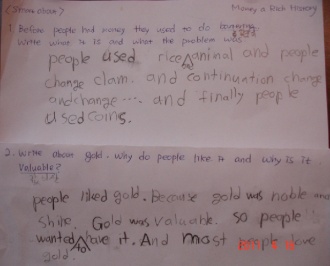 Money a Rich History
1. Before people had money they used to do
Write what it is and what the problem was.
people used rice animal and people
change clam. and continuation change
and change ... and finally people
used coins.
2. Write about gold. Why do people like it and why is it
Valuable?
people liked gold. Because gold was noble and
Shine. Gold was valuable. so people
wanted to have it. And most people love
gold.